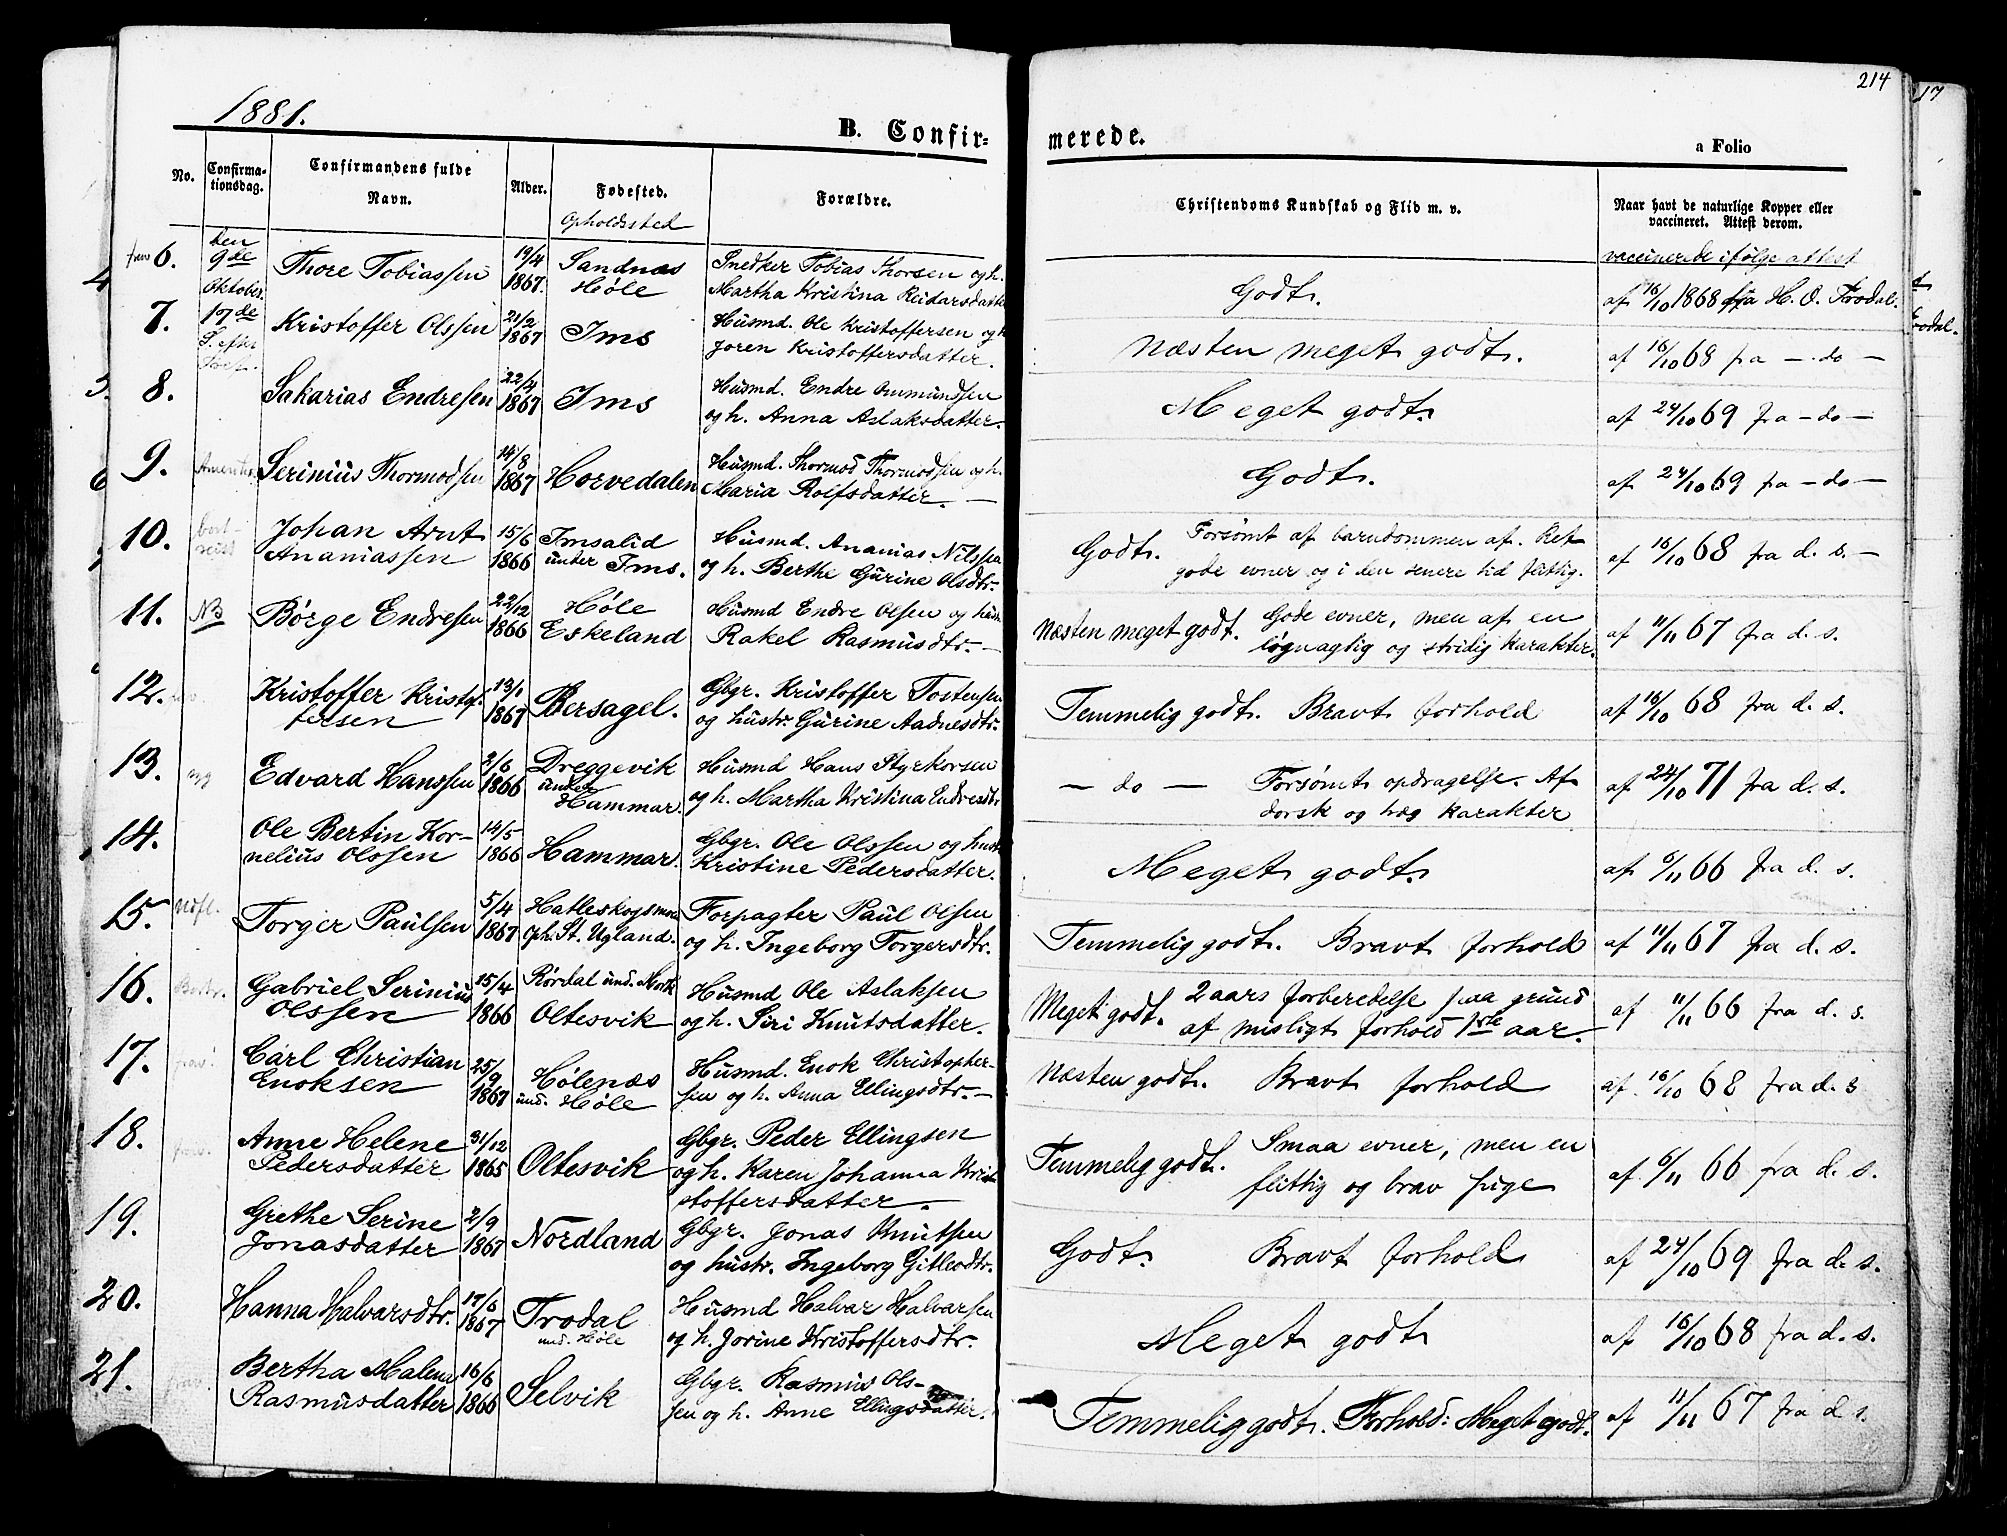 1881.
B. Confir=
merede.
214
a Folio
17
No.
Confirma-
tionsdag.
Confirmandens fulde
Navn.
Alder.
Fødested.
Opholdssted
Forældre.
Christendoms Kundskab og Flid m. v.
Naar havt de naturlige Kopper eller
vaccineret. Attest derom.
vaccinerede ifølge attest
6.
den
9de
Oktober
Thore Tobiassen
19/4
1867.
Sandnæs
Høle
Snedker Tobias Thorsen og h.
Martha Kristina Reidarsdatter
Godt.
af 16/10 1868 fra H. O. Frodal.
7.
17de
S. efter
Kristoffer Olssen
21/2
1867
Ims
Husmd. Ole Kristoffersen og h
Joren Kristoffersdatter.
Næsten meget godt.
af 16/10 68 fra — do —
8.
Sakarias Endresen
22/4
1867
Ims
Husmd. Endre Ommundsen
og h. Anna Aslaksdatter.
Meget godt.
af 24/10 69 fra — do —
9.
Serinius Thormodsen
14/8
1867
Horvedalen
Husmd. Thormod Thormodsen og h.
Maria Rolfsdatter. —
Godt.
af 24/10 69 fra — do —
10.
Johan Arnt
Ananiassen
15/6
1866
Imsalid
under Ims.
Husmd. Ananias Nilssen
og h. Berthe Gurine Olsdtr.
Godt. Forsømt af barndommen af. Ret
gode evner og i den senere tid flittig.
af 16/10 68 fra d. s. —
11.
NB
Børge Endresen
22/12
1866
Høle
Eskeland
Husmd Endre Olsen og hustr.
Rakel Rasmusdtr. —
Næsten meget godt. Gode evner, men af en
løgnagtig og stridig karakter.
af 11/11 67 fra d. s.
12.
Kristoffer Kristof-
fersen
13/1
1867
Bersagel.
Gbgr. Kristoffer Tostensen
og hustr. Gurine Aadnesdtr.
Temmelig godt. Bravt forhold
af 16/10 68 fra d. s.
13.
Edvard Hanssen
2/6
1866
Dreggevik
under
Hammar.
Husmd Hans Styrkorsen
og h. Martha Kristina Endresdtr
— do — Forsømt opdragelse. Af
dorsk og træg karakter
af 24/10 71 fra d. s.
14.
Ole Bertin Kor-
nelius Olssen
14/5
1866
Hammar.
Gbgr. Ole Olssen og hustr
Kristine Pedersdatter.
Meget godt.
af 6/11 66 fra d. s.
15.
Torger Paulsen
5/4
1867
Hatleskogsmoen
Oph. St. Ugland.
Forpagter Paul Olsen
og h. Ingeborg Torgersdtr.
Temmelig godt. Bravt forhold
af 11/11 67 fra d. s.
16.
Gabriel Serinius
Olssen
15/4
1866
Rørdal und.
Oltesvik
Husmd Ole Aslaksen
og h. Siri Knutsdatter.
Meget godt. 2 aars forberedelse paa grund
af misligt forhold 1ste aar.
af 11/11 66 fra d. s.
17.
Carl Christian
Enoksen
25/9
1867
Hølenæs
und. Høle
Husmd. Enok Christopher-
sen og h. Anna Ellingsdtr. —
Næsten godt. Bravt forhold
af 16/10 68 fra d. s
18.
Anne Helene
Pedersdatter
31/12
1865
Oltesvik
Gbgr. Peder Ellingsen
og h. Karen Johanna Krist
stoffersdatter.
Temmelig godt. Smaa evner, men en
flittig og brav pige
af 6/11 66 fra d. s.
19.
Grethe Serine
Jonasdatter
2/9
1867
Nordland
Gbgr. Jonas Knutsen
og hustr. Ingeborg Gitlesdtr.
Godt. Bravt forhold
af 24/10 69 fra d. s.
20.
Hanna Halvarsdtr.
17/6
1867
Trodal
und. Høle
Husmd Halvar Halvarsen
og h. Jorine Kristoffersdtr.
Meget godt
af 16/10 68 fra d. s.
21.
Bertha Malena
Rasmusdatter
16/6
1866
Selvik
Gbgr. Rasmus Ols-
sen og h. Anne Ellingsdatter.
Temmelig godt. Forhold: Meget godt.
af 11/11 67 fra d. s.